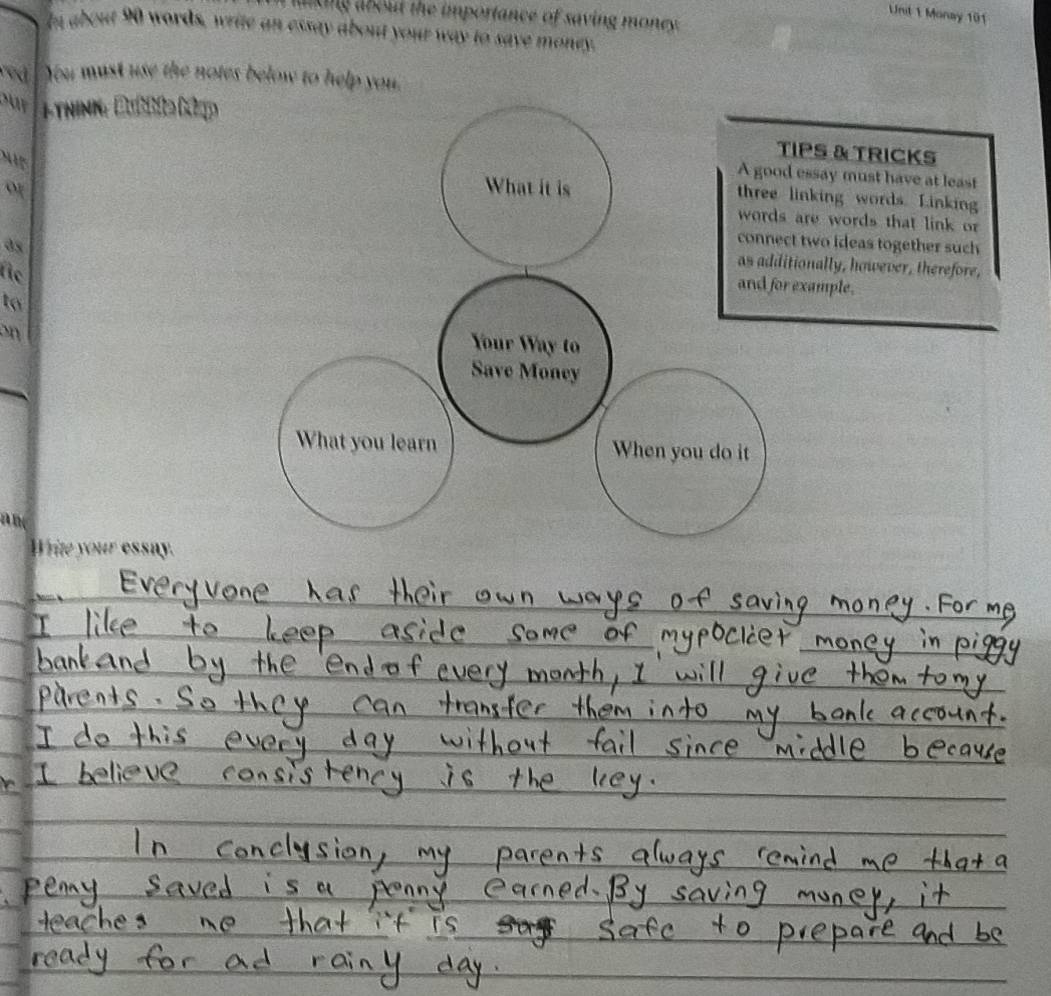 Unit 1 Money 101
about the importance of saving money.
In about 90 words, write an essay about your way to save money.
You must use the notes below to help you.
I-THINK: Bubble Map
What it is
TIPS & TRICKS
A good essay must have at least
three linking words. Linking
words are words that link or
connect two ideas together such
as additionally, however, therefore,
and for example.
Your Way to
Save Money
What you learn
When you do it
Write your essay.
Everyvone has their own ways of saving money. For me,
I like to keep aside some of my pocket money in piggy
bank and by the end of every month, I will give them to my
parents. So they can transfer them into my bank account.
I do this every day without fail since middle because
I believe consistency is the key.
In conclusion, my parents always remind me that a
penny saved is a penny earned. By saving money, it
teaches me that it is safe to prepare and be
ready for ad rainy day.